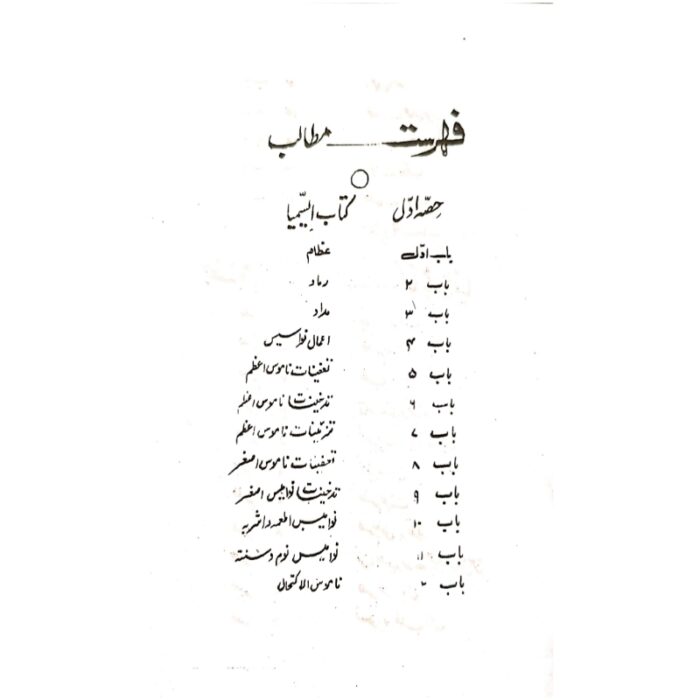 فہرست مطالب
حصہ اوّل کتاب السیمیا
باب اوّل عظام
باب ۲ رماد
باب ۳ مداد
باب ۴ اعمال نوامیس
باب ۵ تعفینات ناموس اعظم
باب ۶ تدخینات ناموس اعظم
باب ۷ تزئینات ناموس اعظم
باب ۸ تعفینات ناموس اصغر
باب ۹ تدخینات نوامیس اصغر
باب ۱۰ نوامیس اطعمہ واشربہ
باب ۱۱ نوامیس نوم
باب ناموس الاکتحال